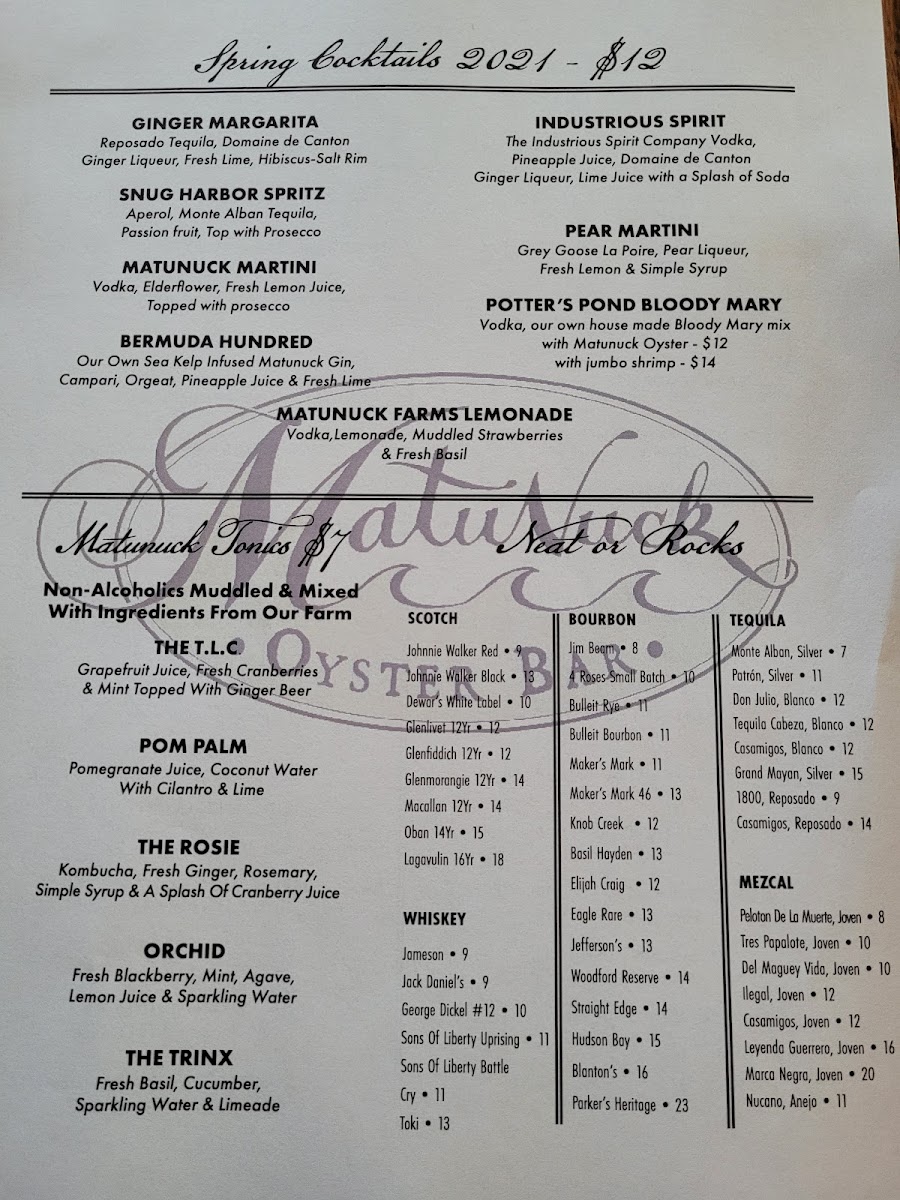 Spring Cocktails 2021 - $12
GINGER MARGARITA
Reposado Tequila, Domaine de Canton
Ginger Liqueur, Fresh Lime, Hibiscus-Salt Rim
SNUG HARBOR SPRITZ
Aperol, Monte Alban Tequila,
Passion fruit, Top with Prosecco
MATUNUCK MARTINI
Vodka, Elderflower, Fresh Lemon Juice,
Topped with prosecco
BERMUDA HUNDRED
Our Own Sea Kelp Infused Matunuck Gin,
Campari, Orgeat, Pineapple Juice & Fresh Lime
INDUSTRIOUS SPIRIT
The Industrious Spirit Company Vodka,
Pineapple Juice, Domaine de Canton
Ginger Liqueur, Lime Juice with a Splash of Soda
PEAR MARTINI
Grey Goose La Poire, Pear Liqueur,
Fresh Lemon & Simple Syrup
POTTER'S POND BLOODY MARY
Vodka, our own house made Bloody Mary mix
with Matunuck Oyster - $12
with jumbo shrimp - $14
MATUNUCK FARMS LEMONADE
Vodka,Lemonade, Muddled Strawberries
& Fresh Basil
Matunuck
Oyster Bar
Matunuck Tonics $7
Non-Alcoholics Muddled & Mixed
With Ingredients From Our Farm
THE T.L.C.
Grapefruit Juice, Fresh Cranberries
& Mint Topped With Ginger Beer
POM PALM
Pomegranate Juice, Coconut Water
With Cilantro & Lime
THE ROSIE
Kombucha, Fresh Ginger, Rosemary,
Simple Syrup & A Splash Of Cranberry Juice
ORCHID
Fresh Blackberry, Mint, Agave,
Lemon Juice & Sparkling Water
THE TRINX
Fresh Basil, Cucumber,
Sparkling Water & Limeade
Neat or Rocks
SCOTCH
Johnnie Walker Red • 9
Johnnie Walker Black • 13
Dewar's White Label • 10
Glenlivet 12Yr • 12
Glenfiddich 12Yr • 12
Glenmorangie 12Yr • 14
Macallan 12Yr • 14
Oban 14Yr • 15
Lagavulin 16Yr • 18
WHISKEY
Jameson • 9
Jack Daniel's • 9
George Dickel #12 • 10
Sons Of Liberty Uprising • 11
Sons Of Liberty Battle
Cry • 11
Toki • 13
BOURBON
Jim Beam • 8
4 Roses Small Batch • 10
Bulleit Rye • 11
Bulleit Bourbon • 11
Maker's Mark • 11
Maker's Mark 46 • 13
Knob Creek • 12
Basil Hayden • 13
Elijah Craig • 12
Eagle Rare • 13
Jefferson's • 13
Woodford Reserve • 14
Straight Edge • 14
Hudson Bay • 15
Blanton's • 16
Parker's Heritage • 23
TEQUILA
Monte Alban, Silver • 7
Patrón, Silver • 11
Don Julio, Blanco • 12
Tequila Cabeza, Blanco • 12
Casamigos, Blanco • 12
Grand Mayan, Silver • 15
1800, Reposado • 9
Casamigos, Reposado • 14
MEZCAL
Peloton De La Muerte, Joven • 8
Tres Papalote, Joven • 10
Del Maguey Vida, Joven • 10
Ilegal, Joven • 12
Casamigos, Joven • 12
Leyenda Guerrero, Joven • 16
Marca Negra, Joven • 20
Nucano, Anejo • 11